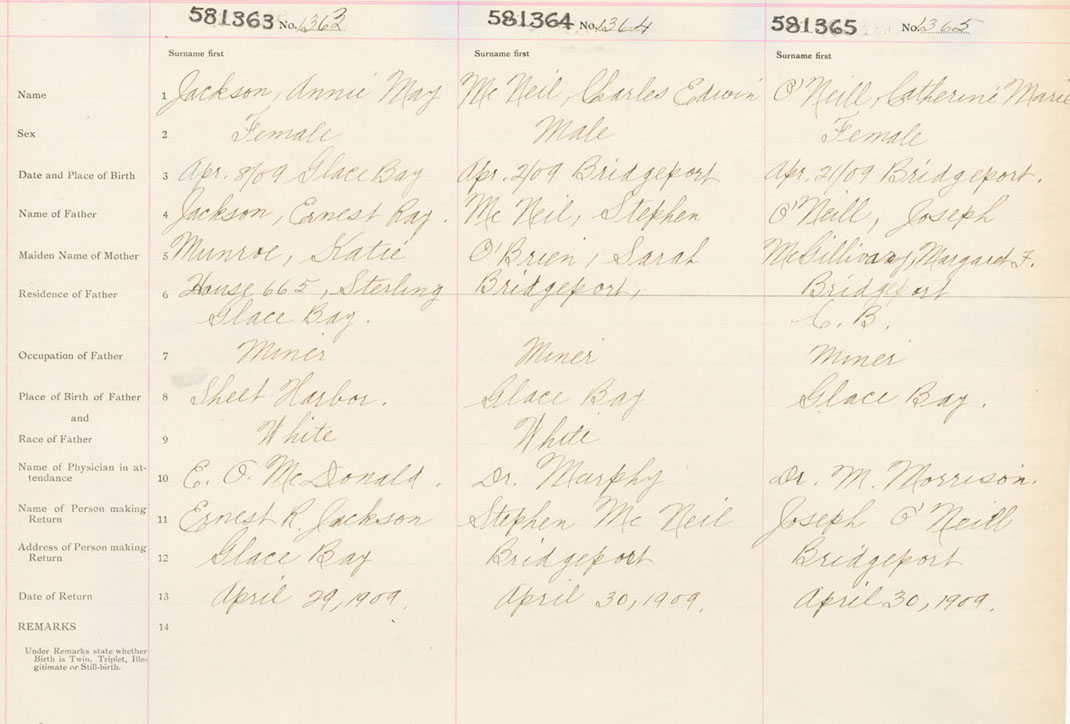 581363 No. 1363 581364 No. 1364 581365 No. 1365
Surname first Surname first Surname first
Name 1 Jackson, Annie May Mc Neil, Charles Edwin O'Neill, Catherine Marie
Sex 2 Female Male Female
Date and Place of Birth 3 Apr. 8/09 Glace Bay Apr. 2/09 Bridgeport Apr. 21/09 Bridgeport.
Name of Father 4 Jackson, Ernest Ray. Mc Neil, Stephen O'Neill, Joseph
Maiden Name of Mother 5 Munroe, Katie O'Brien, Sarah McGillivary, Margaret F.
Residence of Father 6 House 665, Sterling Bridgeport, Bridgeport
Glace Bay. C. B.
Occupation of Father 7 Miner Miner Miner
Place of Birth of Father 8 Sheet Harbor. Glace Bay Glace Bay.
and
Race of Father 9 White White
Name of Physician in at-
tendance 10 E. O. McDonald. Dr. Murphy Dr. M. Morrison.
Name of Person making
Return 11 Ernest R. Jackson Stephen Mc Neil Joseph O'Neill
Address of Person making
Return 12 Glace Bay Bridgeport Bridgeport
Date of Return 13 April 29, 1909. April 30, 1909. April 30, 1909.
REMARKS 14
Under Remarks state whether
Birth is Twin, Triplet, Ille-
gitimate or Still-birth.